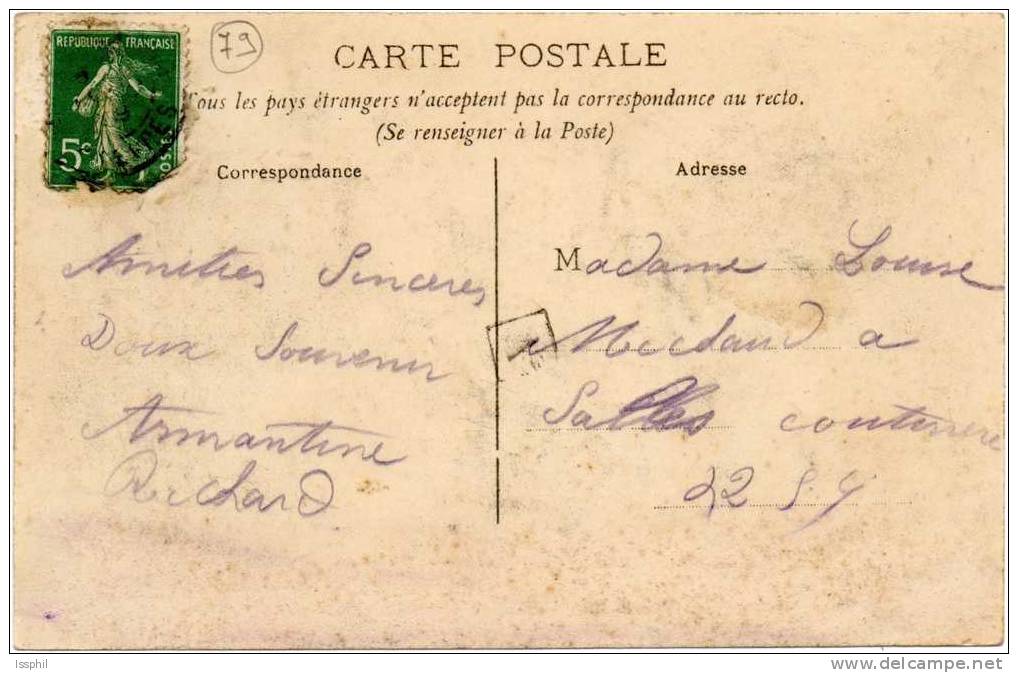 RÉPUBLIQUE FRANÇAISE
5c
POSTES
79
CARTE POSTALE
Tous les pays étrangers n'acceptent pas la correspondance au recto.
(Se renseigner à la Poste)
Correspondance
Amities Sinceres
Doux Souvenir
Armantine
Richard
Adresse
Madame Louise
a
Salles couturiere
Issphil
www.delcampe.net